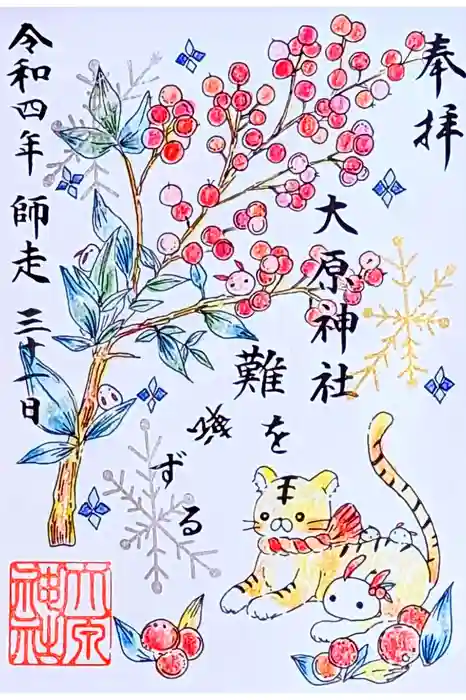 奉拝
大原神社
難を
ずる
令和四年 師走 三十一日
大原神社